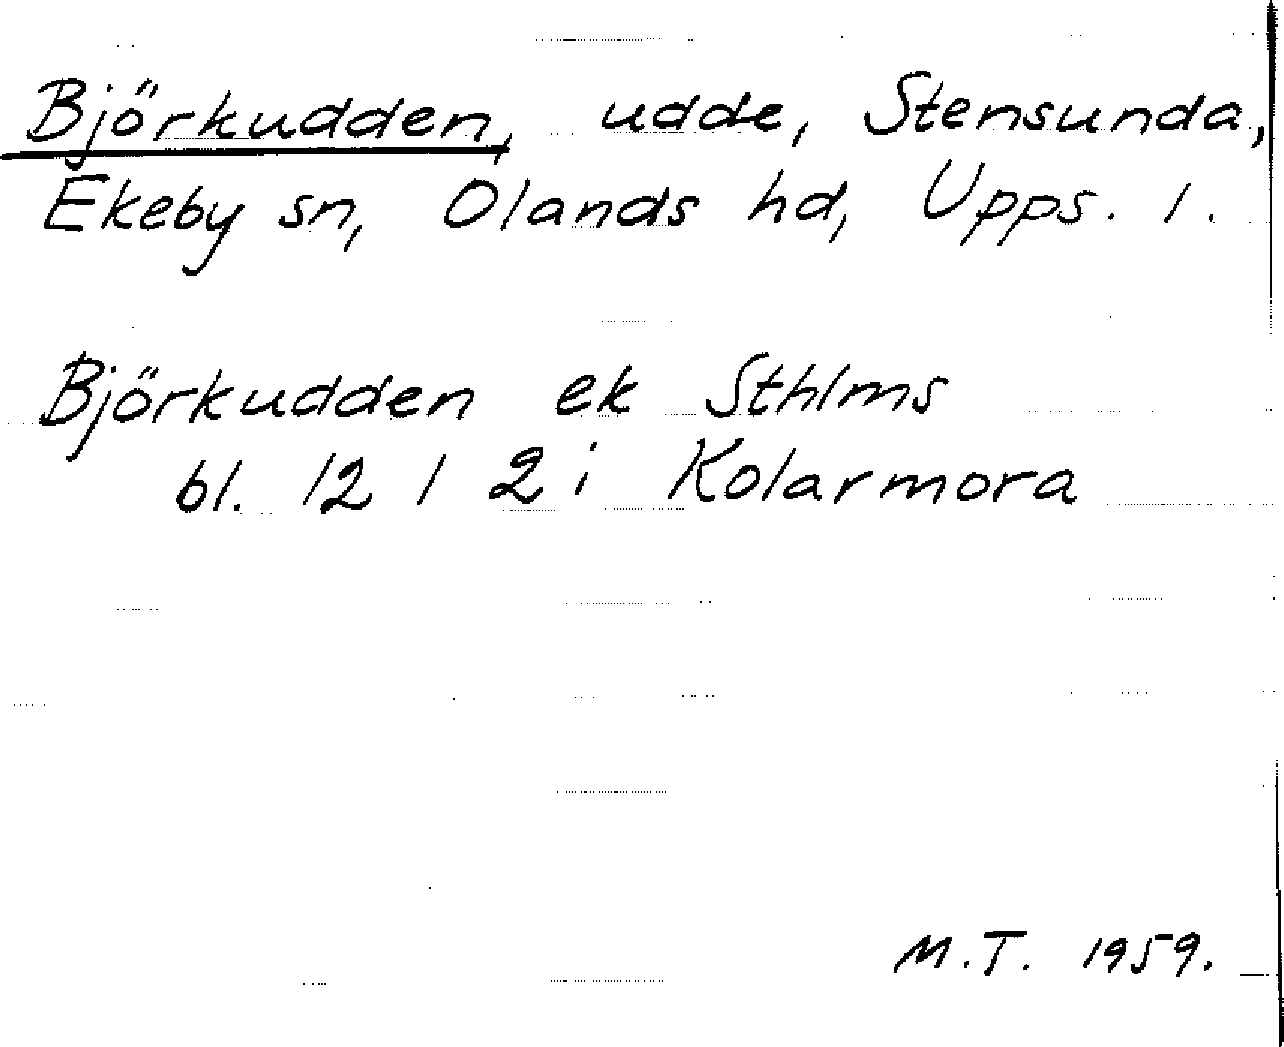 Björkudden, udde, Stensunda,
Ekeby sn, Olands hd, Upps. l.
Björkudden ek Sthlms
bl. 12 l 2 i Kolarmora
M.T. 1959.